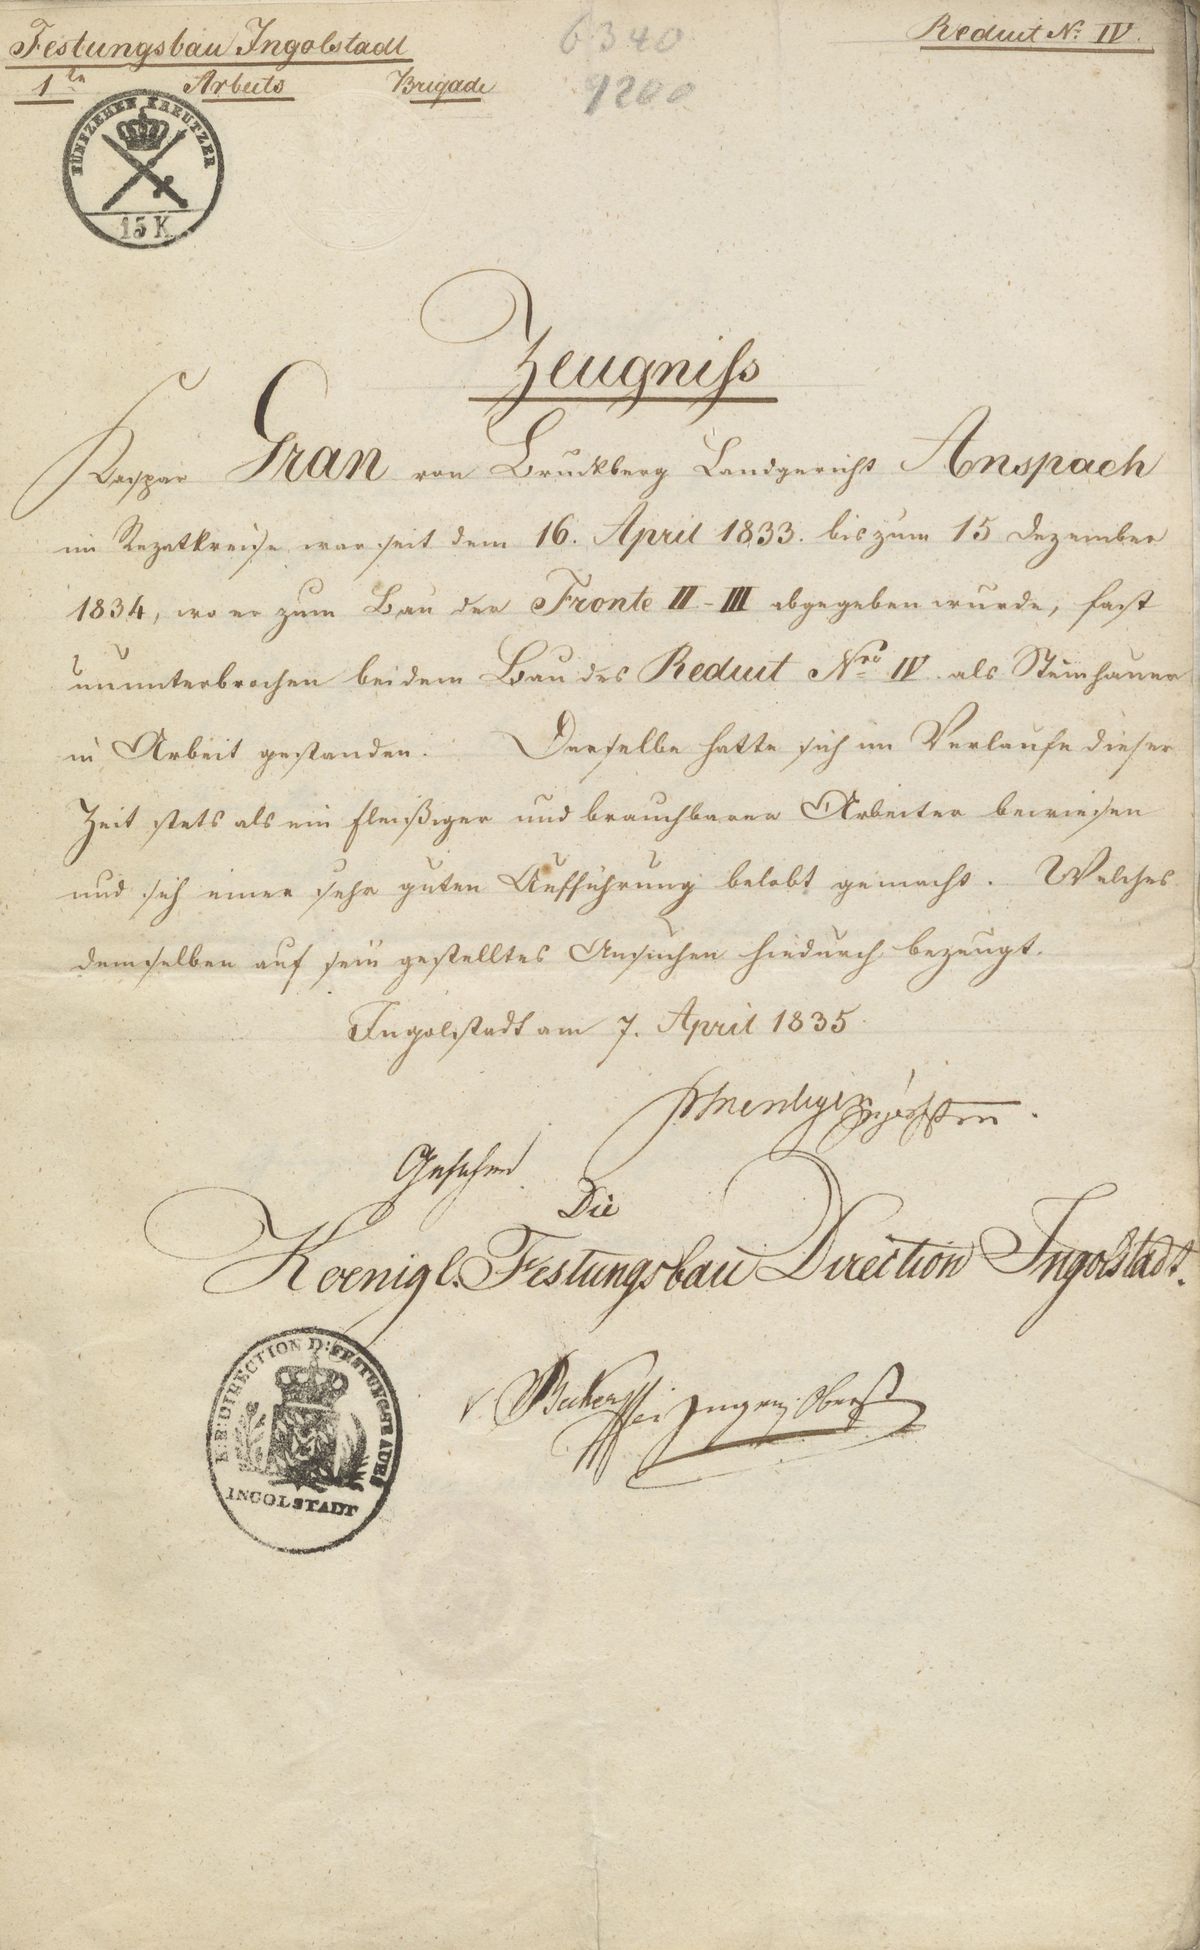 Festungsbau Ingolstadt
Reduit No IV.
6340
1te Arbeits Brigade
9200
FÜNFZEHEN KREUTZER
15 K
Zeugniß
Kaspar Gran von Bruckberg Landgerichts Anspach
im Rezatkreise war seit dem 16. April 1833. bis zum 15 Dezember
1834, wo er zum Bau der Fronte II - III abgegeben wurde, fast
ununterbrochen bei dem Bau des Reduit Nro IV. als Steinhauer
in Arbeit gestanden. Derselbe hatte sich im Verlaufe dieser
Zeit stets als ein fleißiger und brauchbarer Arbeiter bewiesen
und sich einer sehr guten Aufführung belobt gemacht. Welches
demselben auf sein gestelltes Ansuchen hiedurch bezeugt.
Ingolstadt am 7. April 1835
Gesehen
Die
Koenigl. Festungsbau Direction Ingolstadt.
v. Becker Ingen. Oberst
K: B: DIRECTION D: FESTUNGSBAUES
INGOLSTADT